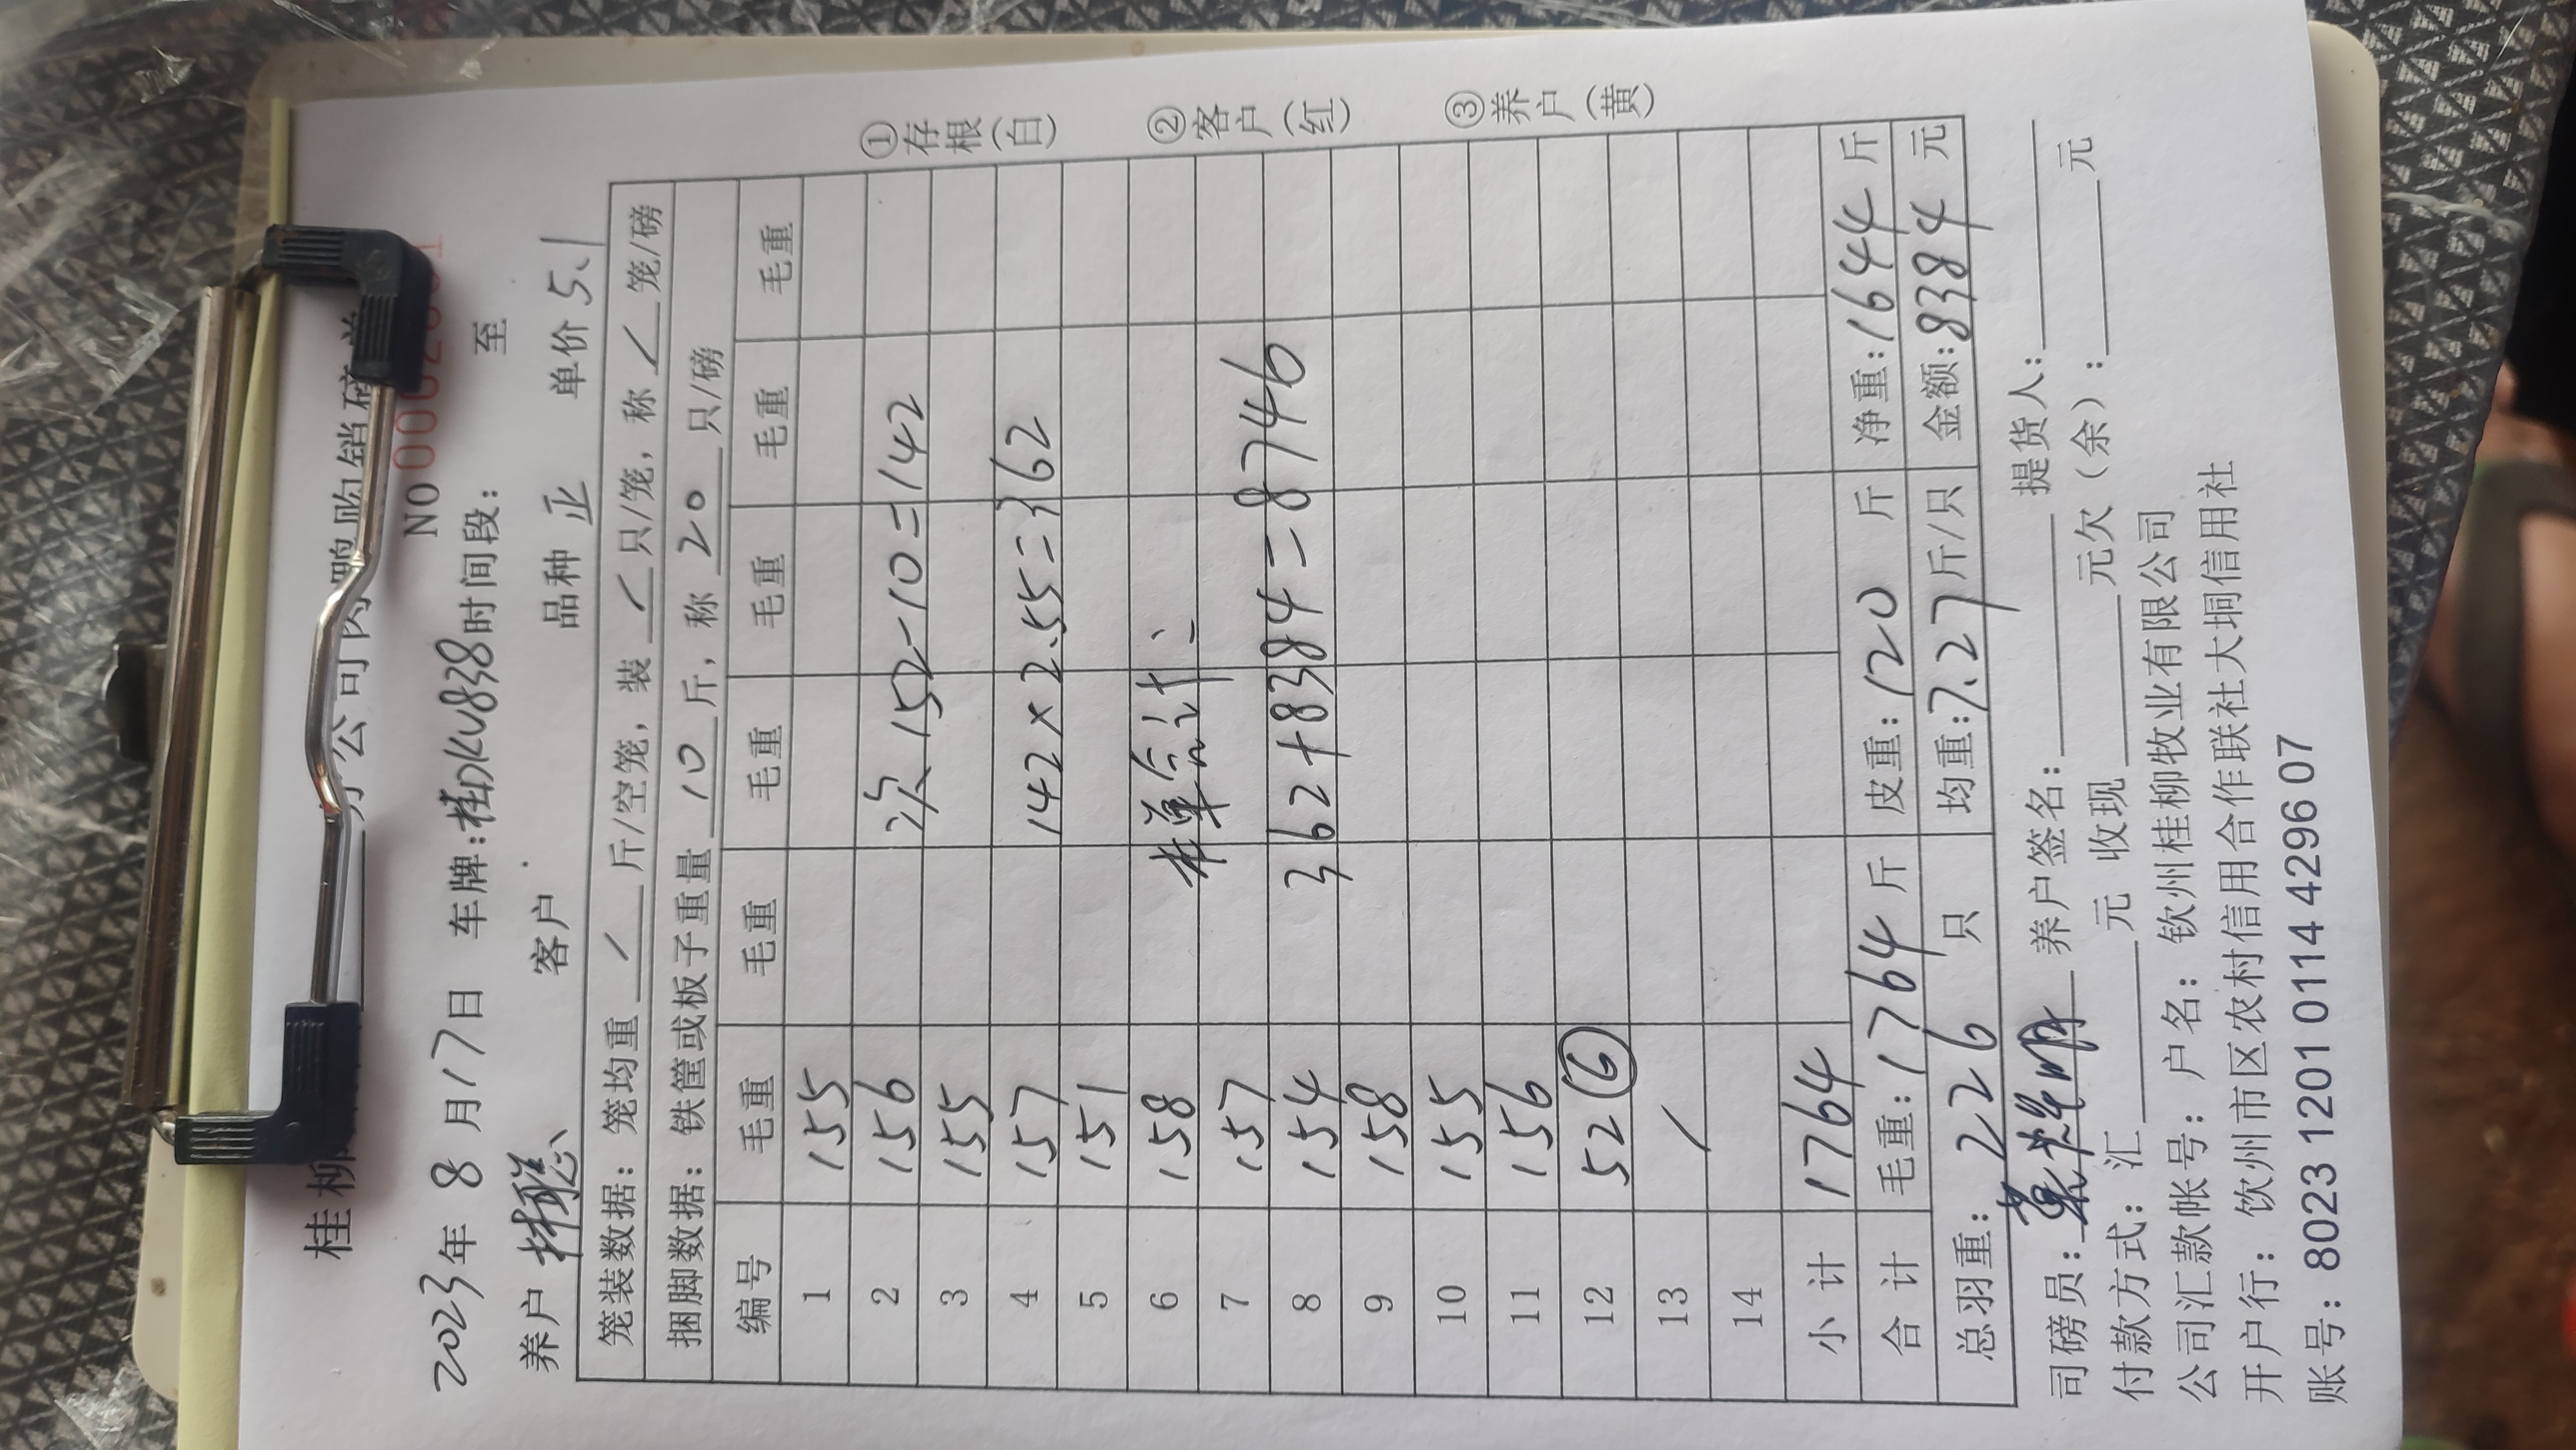 桂柳 分公司肉鸭购销磅单
NO 0002
2023年 8月17日 车牌:桂DKV838 时间段: 至
养户 客户 品种 正 单价 5.1
笼装数据: 笼均重 / 斤/空笼, 装 / 只/笼, 称 / 笼/磅
捆脚数据: 铁筐或板子重量 10 斤, 称 20 只/磅
编号 毛重 毛重 毛重 毛重 毛重 毛重
1 155
2 156 次 152-10=142
3 155
4 157 142×2.55=362
5 151
6 158 本单合计:
7 157
8 154 362+8384=8746
9 158
10 155
11 156
12 52 ⑥
13 /
14
小计 1764
合计 毛重: 1764 斤 皮重: 120 斤 净重: 1644 斤
总羽重: 226 只 均重: 7.27 斤/只 金额: 8384 元
①存根(白) ②客户(红) ③养户(黄)
司磅员: 养户签名: 提货人:
付款方式: 汇 元 收现 元欠(余): 元
公司汇款帐号: 户名: 钦州桂柳牧业有限公司
开户行: 钦州市区农村信用合作联社大垌信用社
账号: 8023 1201 0114 4296 07